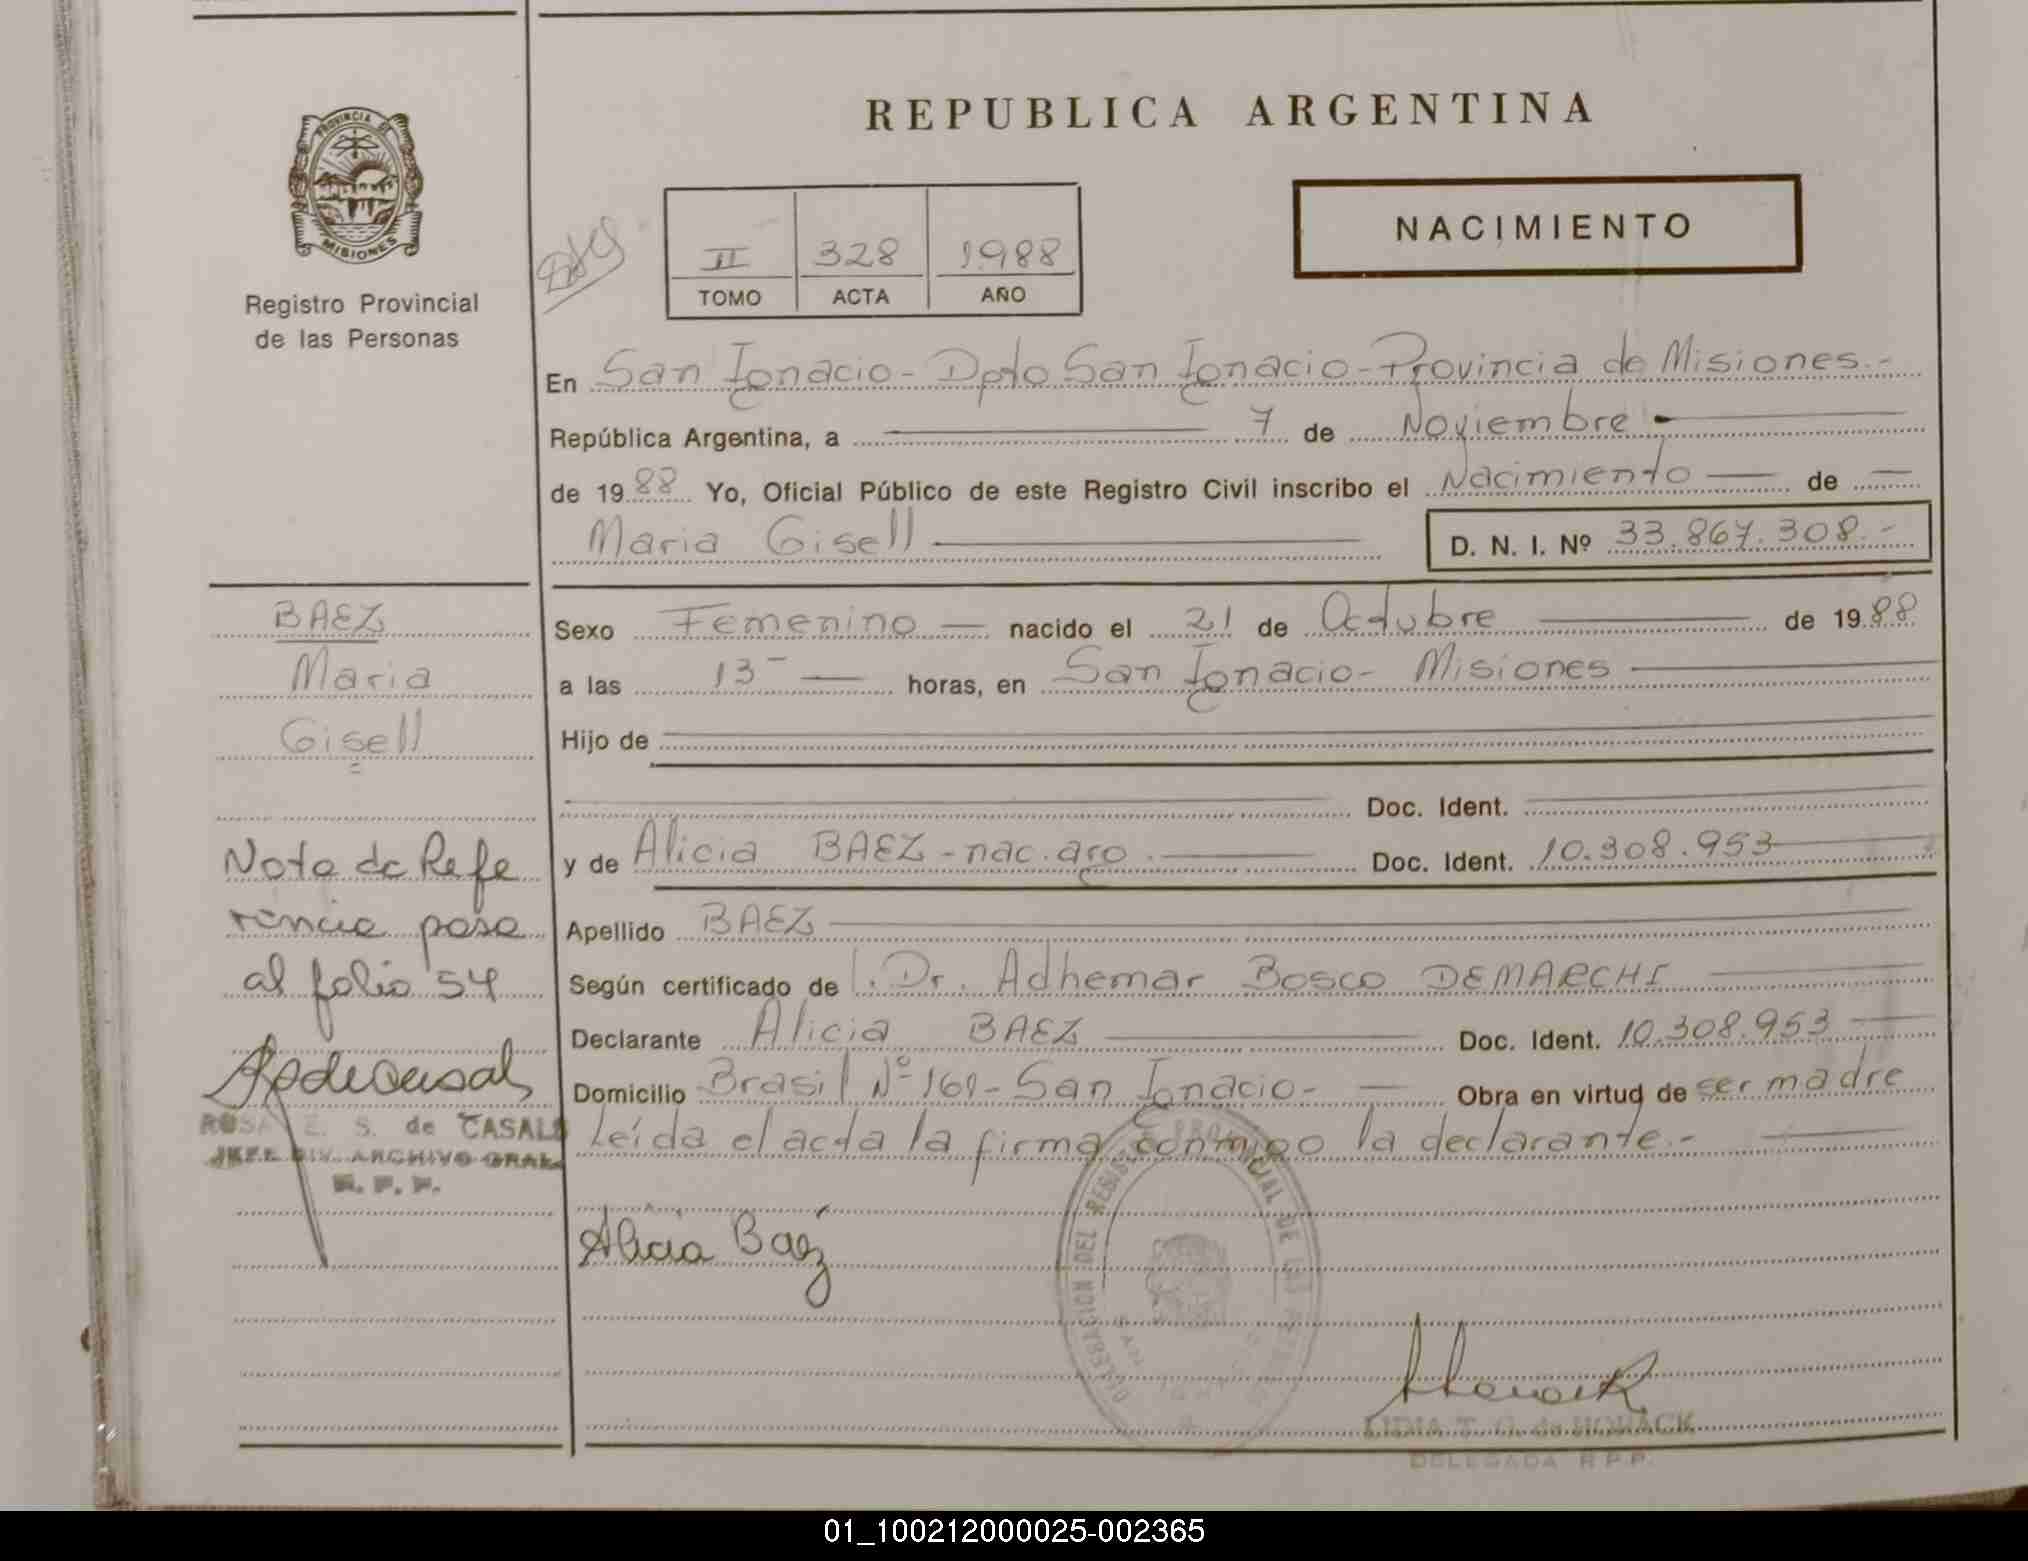 REPUBLICA ARGENTINA
PROVINCIA DE
MISIONES
Registro Provincial
de las Personas
II 328 1988
TOMO ACTA AÑO
NACIMIENTO
En San Ignacio - Dpto San Ignacio - Provincia de Misiones.-
República Argentina, a 7 de Noviembre
de 1988 Yo, Oficial Público de este Registro Civil inscribo el Nacimiento de
Maria Gisell D. N. I. Nº 33.867.308.-
Sexo Femenino nacido el 21 de Octubre de 1988
a las 13 horas, en San Ignacio - Misiones
Hijo de
Doc. Ident.
y de Alicia BAEZ - nac. arg. Doc. Ident. 10.308.953
Apellido BAEZ
Según certificado de Dr. Adhemar Bosco DEMARCHI
Declarante Alicia BAEZ Doc. Ident. 10.308.953
Domicilio Brasil Nº 160 - San Ignacio - Obra en virtud de ser madre
leída el acta la firma conmigo la declarante.-
Alicia Baez
BAEZ
Maria
Gisell
Nota de Refe
rencia pasa
al folio 54
ROSA E. S. de CASALS
JEFE DIV. ARCHIVO GRAL.
R. P. P.
DELEGACION DEL REGISTRO PROVINCIAL DE LAS PERSONAS
LIDIA T. G. de HORACK
DELEGADA R.P.P.
01_100212000025-002365